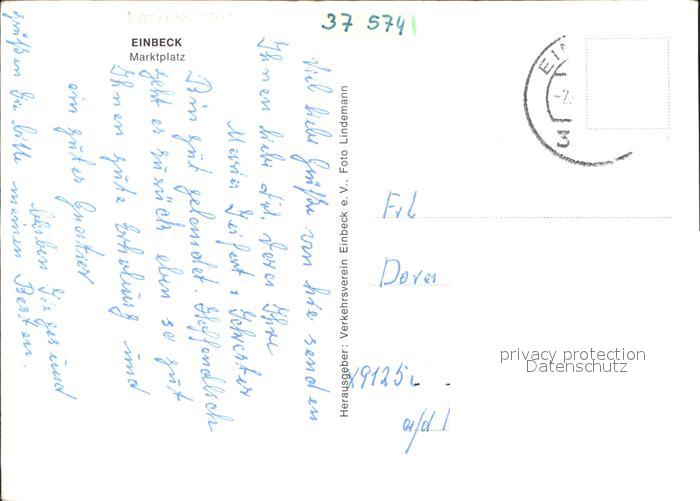 37 574
EINBECK
Marktplatz
Viel liebe Grüße von hie senden
Ihnen liebe Frl. Dora Ihre
Maria Seifert + Schwester
Bin gut gelandet. Hoffendlich
geht es zurück eben so gut
Ihnen gute Erholung und
ein gutes Quartier
bleiben Sie gesund
grüßen Sie bitte meinen Besten.
Herausgeber: Verkehrsverein Einbeck e. V., Foto Lindemann
EIN
-2.
3
Frl
Dora
X9125
a/d
privacy protection
Datenschutz